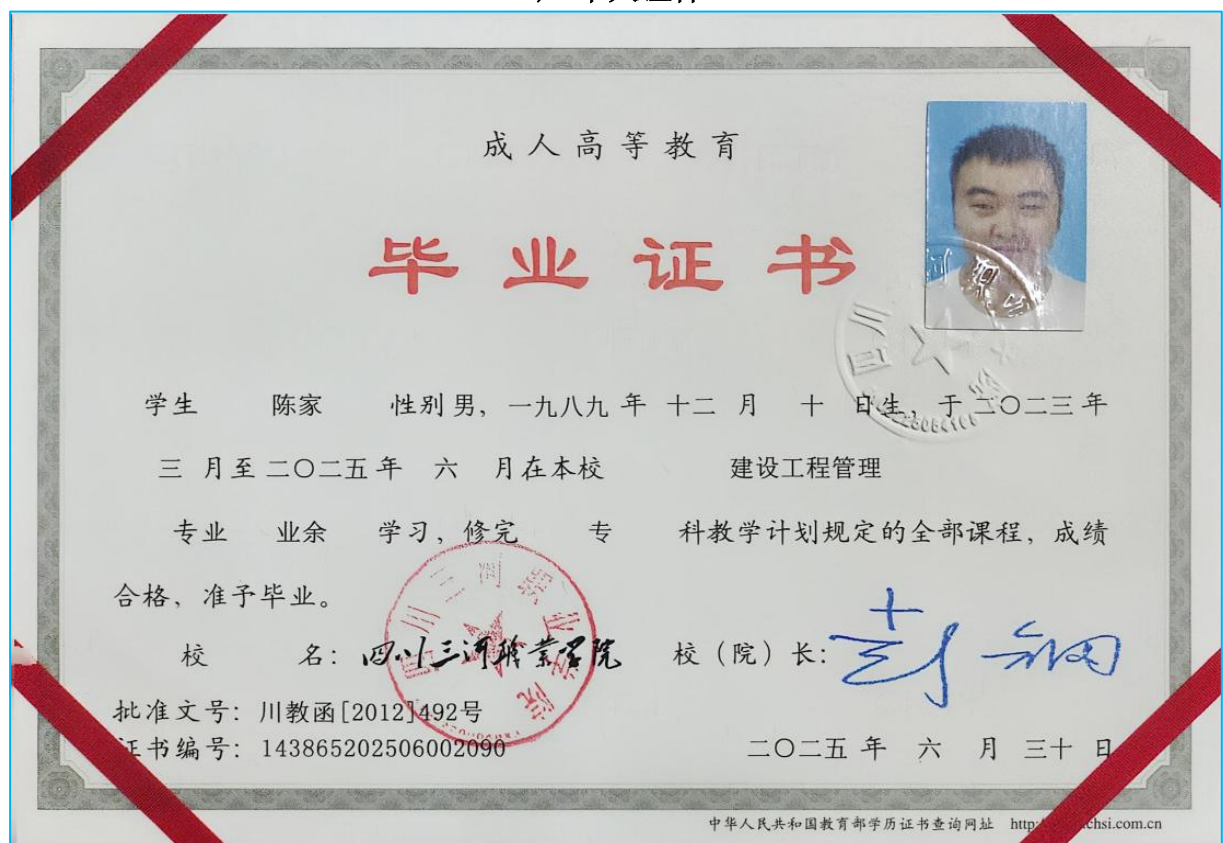 成人高等教育
毕业证书
学生 陈家 性别 男，一九八九 年 十二 月 十 日生，于 二〇二三 年
三 月至 二〇二五 年 六 月在本校 建设工程管理
专业 业余 学习，修完 专 科教学计划规定的全部课程，成绩
合格，准予毕业。
校 名：四川三河职业学院 校（院）长：
批准文号：川教函[2012]492号
证书编号：143865202506002090 二〇二五 年 六 月 三十 日
中华人民共和国教育部学历证书查询网址 http: chsi.com.cn